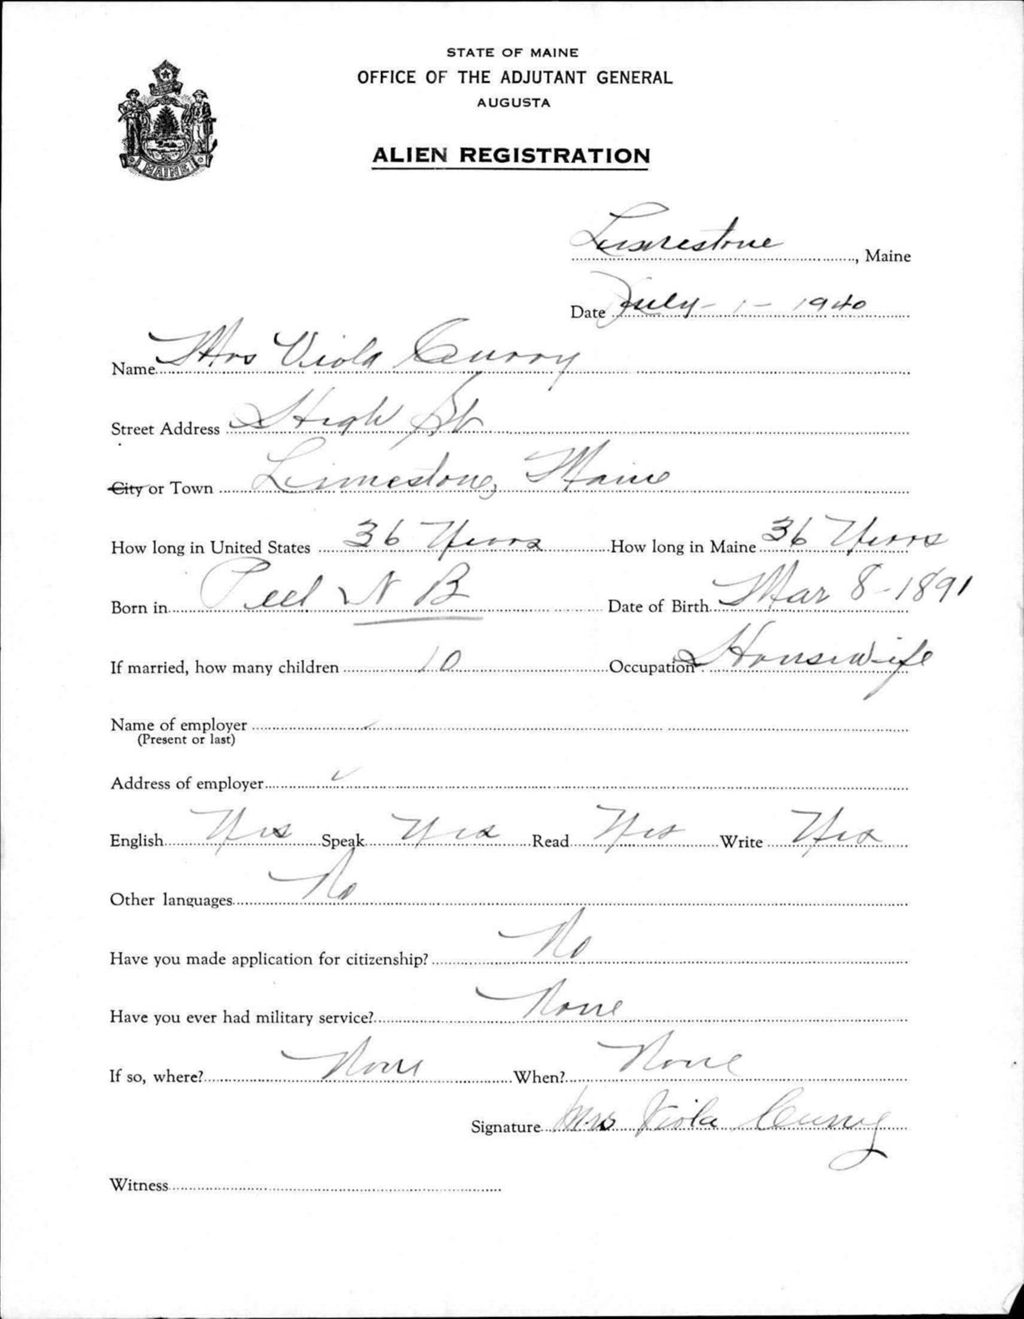 STATE OF MAINE
OFFICE OF THE ADJUTANT GENERAL
AUGUSTA
ALIEN REGISTRATION
MAINE
Limestone, Maine
Date July - 1 - 1940
Name Mrs Viola Curry
Street Address High St
City or Town Limestone, Maine
How long in United States 36 Years How long in Maine 36 Years
Born in Peel N B Date of Birth Mar 8 - 1891
If married, how many children 10 Occupation Housewife
Name of employer
(Present or last)
Address of employer
English Yes Speak Yes Read Yes Write Yes
Other languages No
Have you made application for citizenship? No
Have you ever had military service? None
If so, where? None When? None
Signature Mrs Viola Curry
Witness